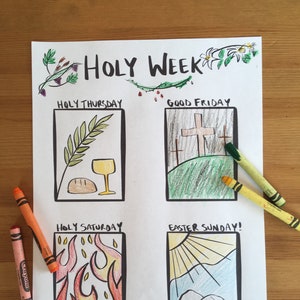 HOLY WEEK
HOLY THURSDAY
GOOD FRIDAY
HOLY SATURDAY
EASTER SUNDAY!